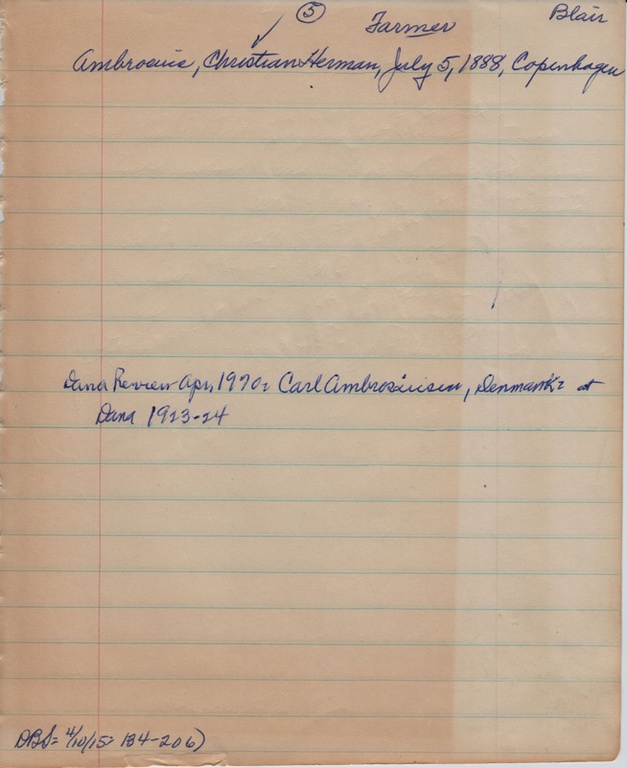 ⑤ Farmer Blair
Ambrosius, Christian Herman, July 5, 1888, Copenhagen
Dana Review Apr, 1970: Carl Ambrosiusen, Denmark: at
Dana 1923-24
DBS= 4/10/15= 184-206)